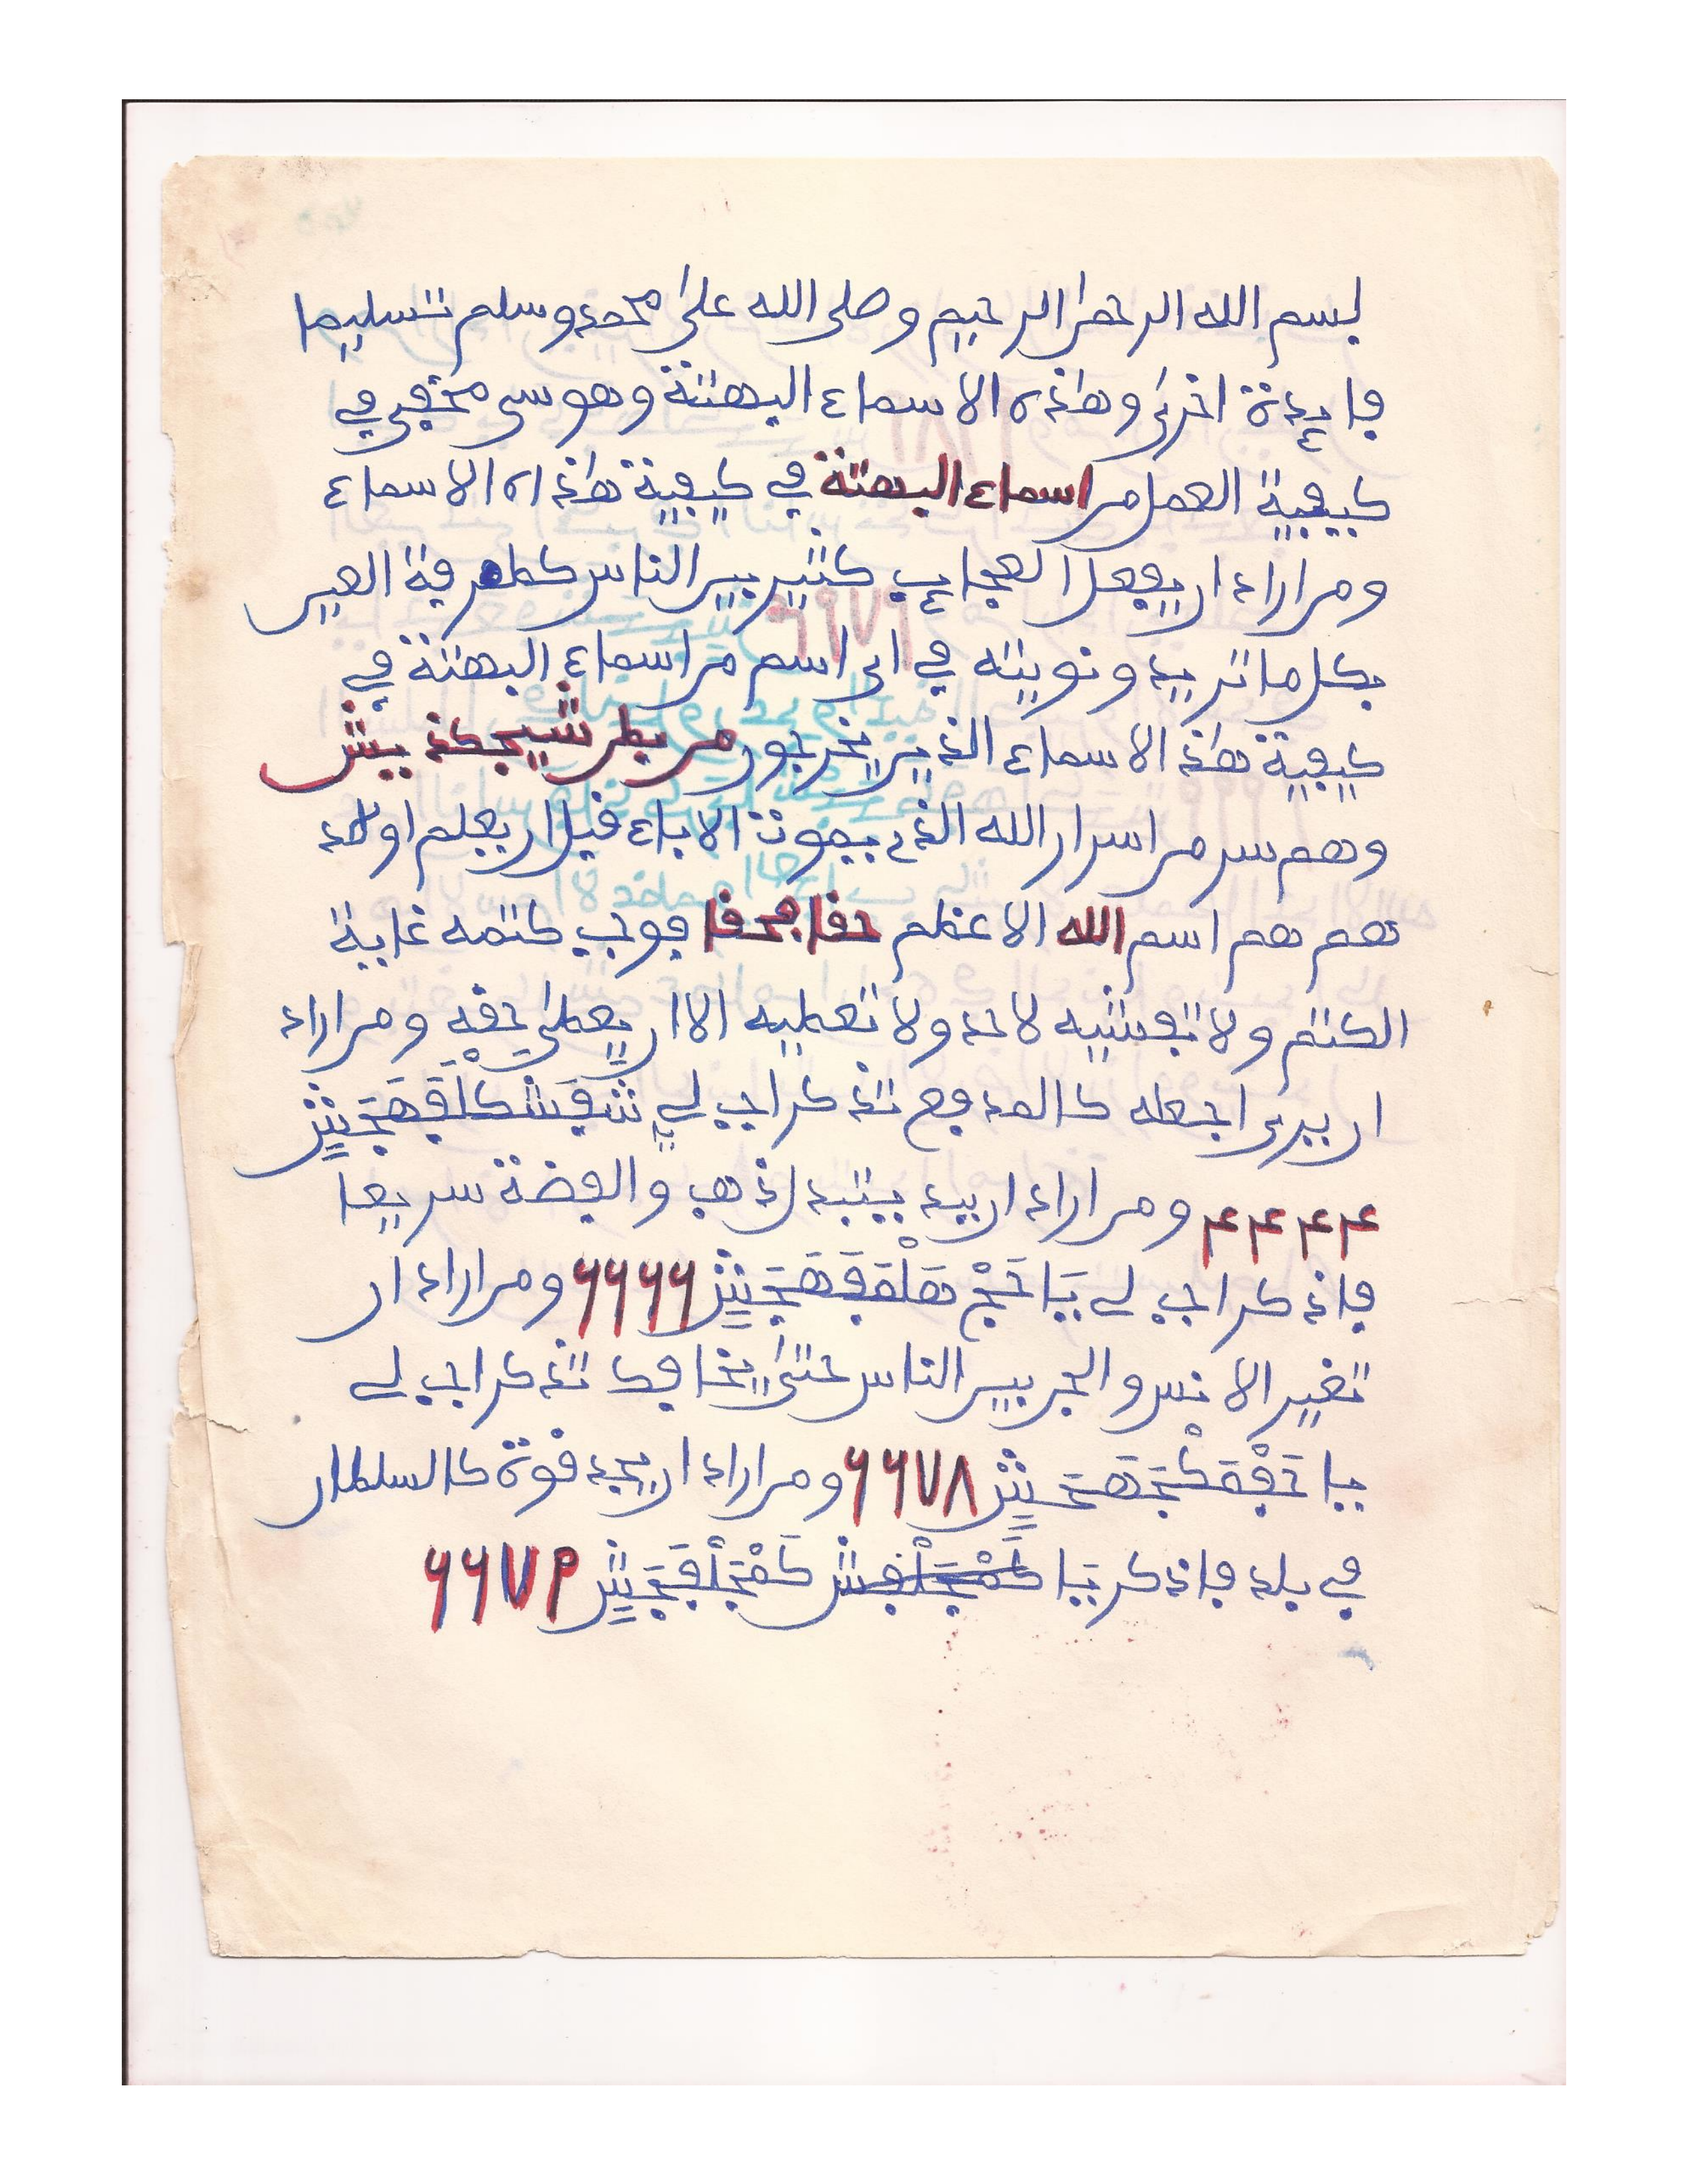 بسم الله الرحمن الرحيم وصلى الله على محمد وسلم تسليما
فايدة اخرى وهذه الاسماء البهتة وهو سر مخفي في
كيفية العمل من اسماء البهتة في كيفية هذه الاسماء
ومن اراد ان يفعل العجايب كثير بين الناس كطرفة العين
بكل ما تريد ونويته في اى اسم من اسماء البهتة في
كيفية هذه الاسماء الذين يخرجون من بطن
وهم سر من اسرار الله الذى يموت الاباء قبل ان يعلم اولاد
هم هم اسم الله الاعظم حقا حقا فوجب كتمه غاية
الكتم ولا تفشيه لاحد ولا تعليه الا ان يعطى حقه ومن اراد
ان يرى اجعله كالمدفع تذكر اجب لى
۴۴۴۴ ومن اراد ان يبيد ذهب والفضة سريعا
فاذكر اجب لى يا ۶۶۶۶ ومن اراد ان
تغير الانس والجن بين الناس حتى يخافك تذكر اجب لى
يا ۶۶۷۸ ومن اراد ان يجد قوة كالسلطان
في بلد فاذكر يا ۶۶۷۹